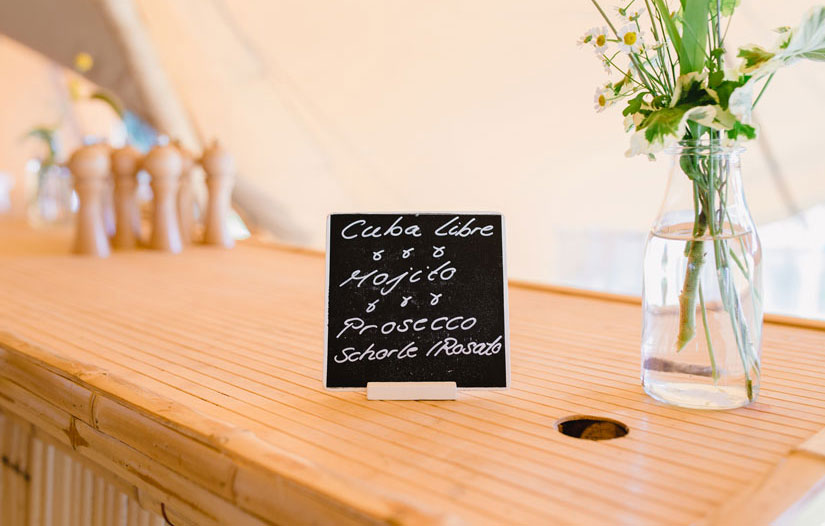 Cuba libre
Mojito
Prosecco
Schorle /Rosato